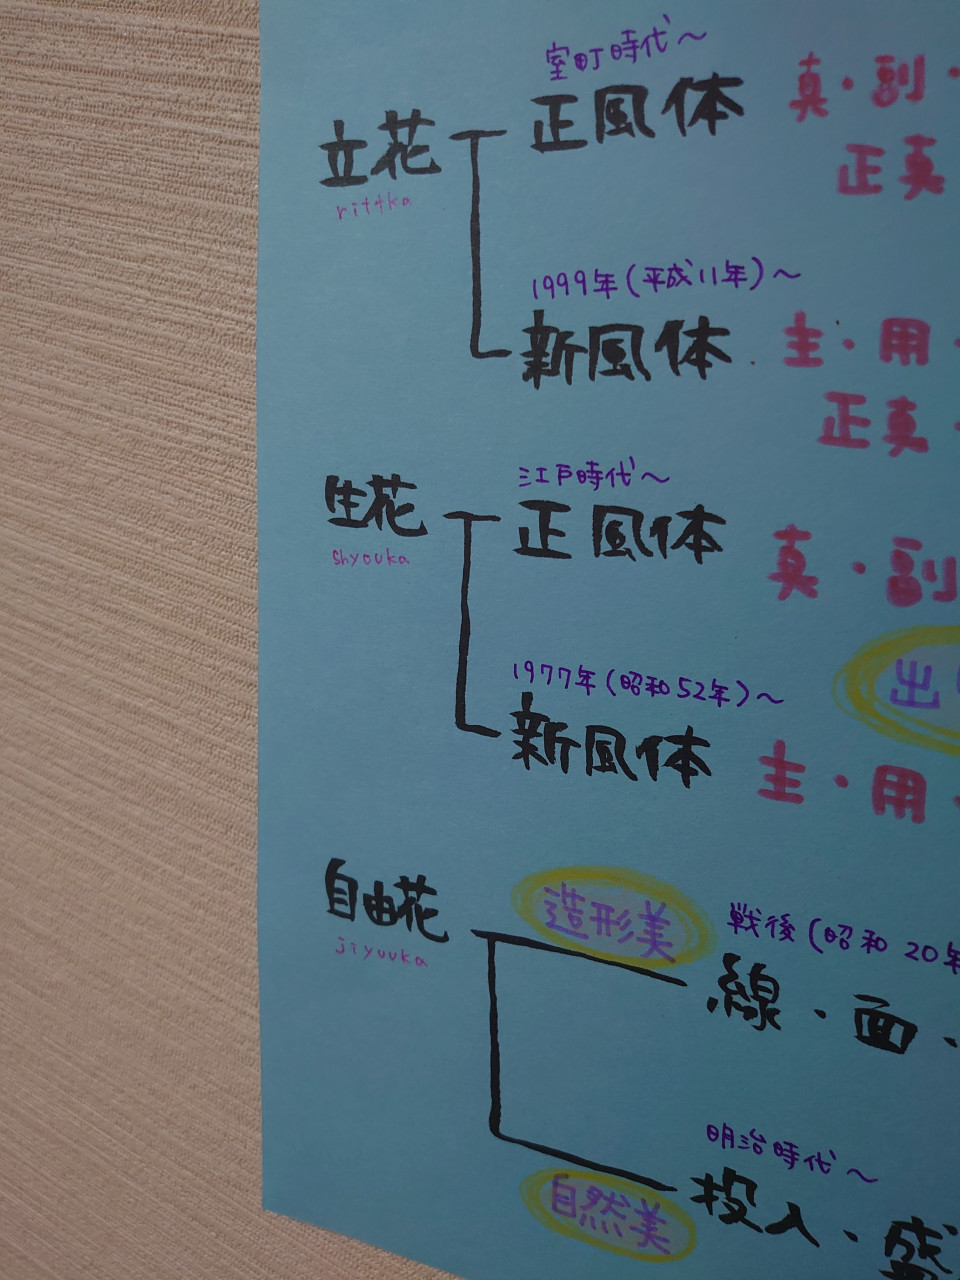 室町時代～
立花 正風体 真・副・
rittka 正真
1999年(平成11年)～
新風体 主・用・
正真・
江戸時代～
生花 正風体 真・副
shyouka
出
1977年(昭和52年)～
新風体 主・用・
自由花 造形美 戦後(昭和20年
jiyuuka
線・面・
明治時代～
自然美 投入・盛